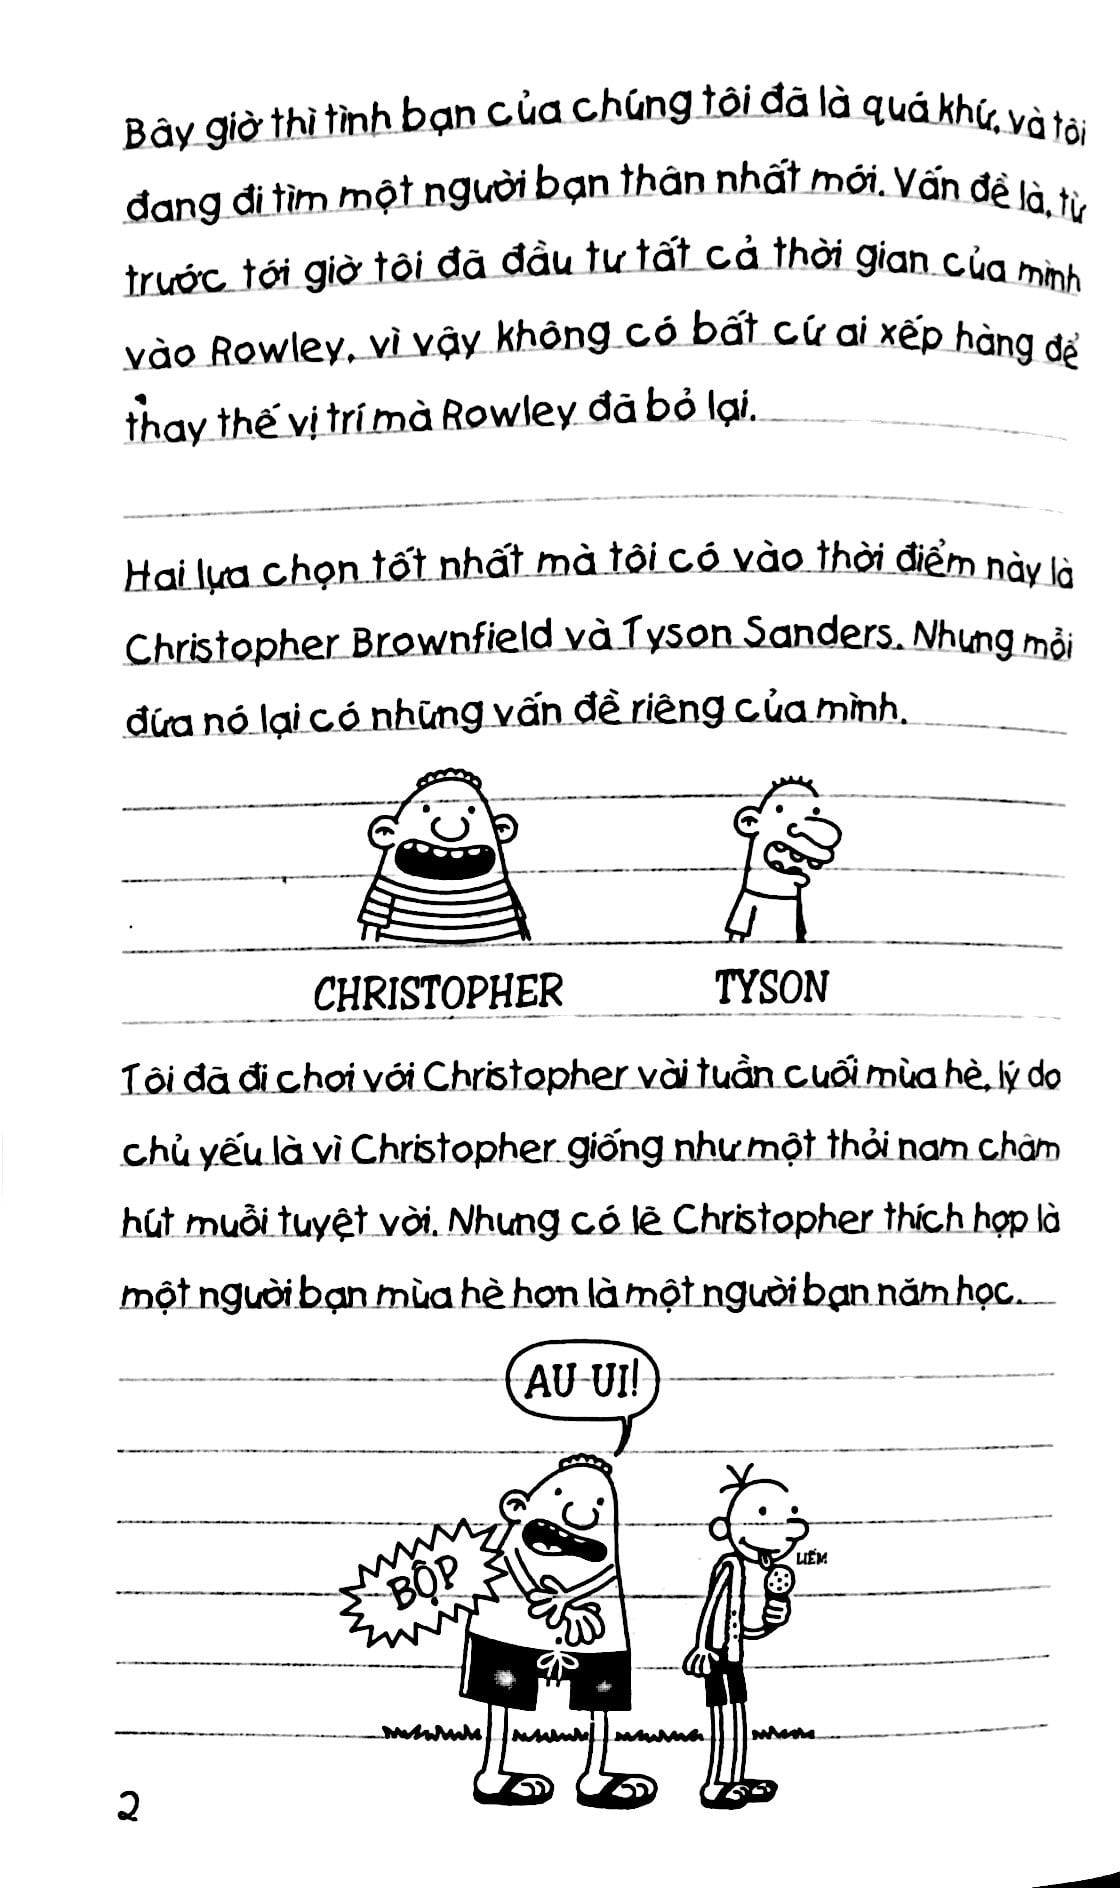 Bây giờ thì tình bạn của chúng tôi đã là quá khứ, và tôi
đang đi tìm một người bạn thân nhất mới. Vấn đề là, từ
trước tới giờ tôi đã đầu tư tất cả thời gian của mình
vào Rowley, vì vậy không có bất cứ ai xếp hàng để
thay thế vị trí mà Rowley đã bỏ lại.
Hai lựa chọn tốt nhất mà tôi có vào thời điểm này là
Christopher Brownfield và Tyson Sanders. Nhưng mỗi
đứa nó lại có những vấn đề riêng của mình.
CHRISTOPHER
TYSON
Tôi đã đi chơi với Christopher vài tuần cuối mùa hè, lý do
chủ yếu là vì Christopher giống như một thỏi nam châm
hút muỗi tuyệt vời. Nhưng có lẽ Christopher thích hợp là
một người bạn mùa hè hơn là một người bạn năm học.
AU UI!
BỘP
LIẾM
2